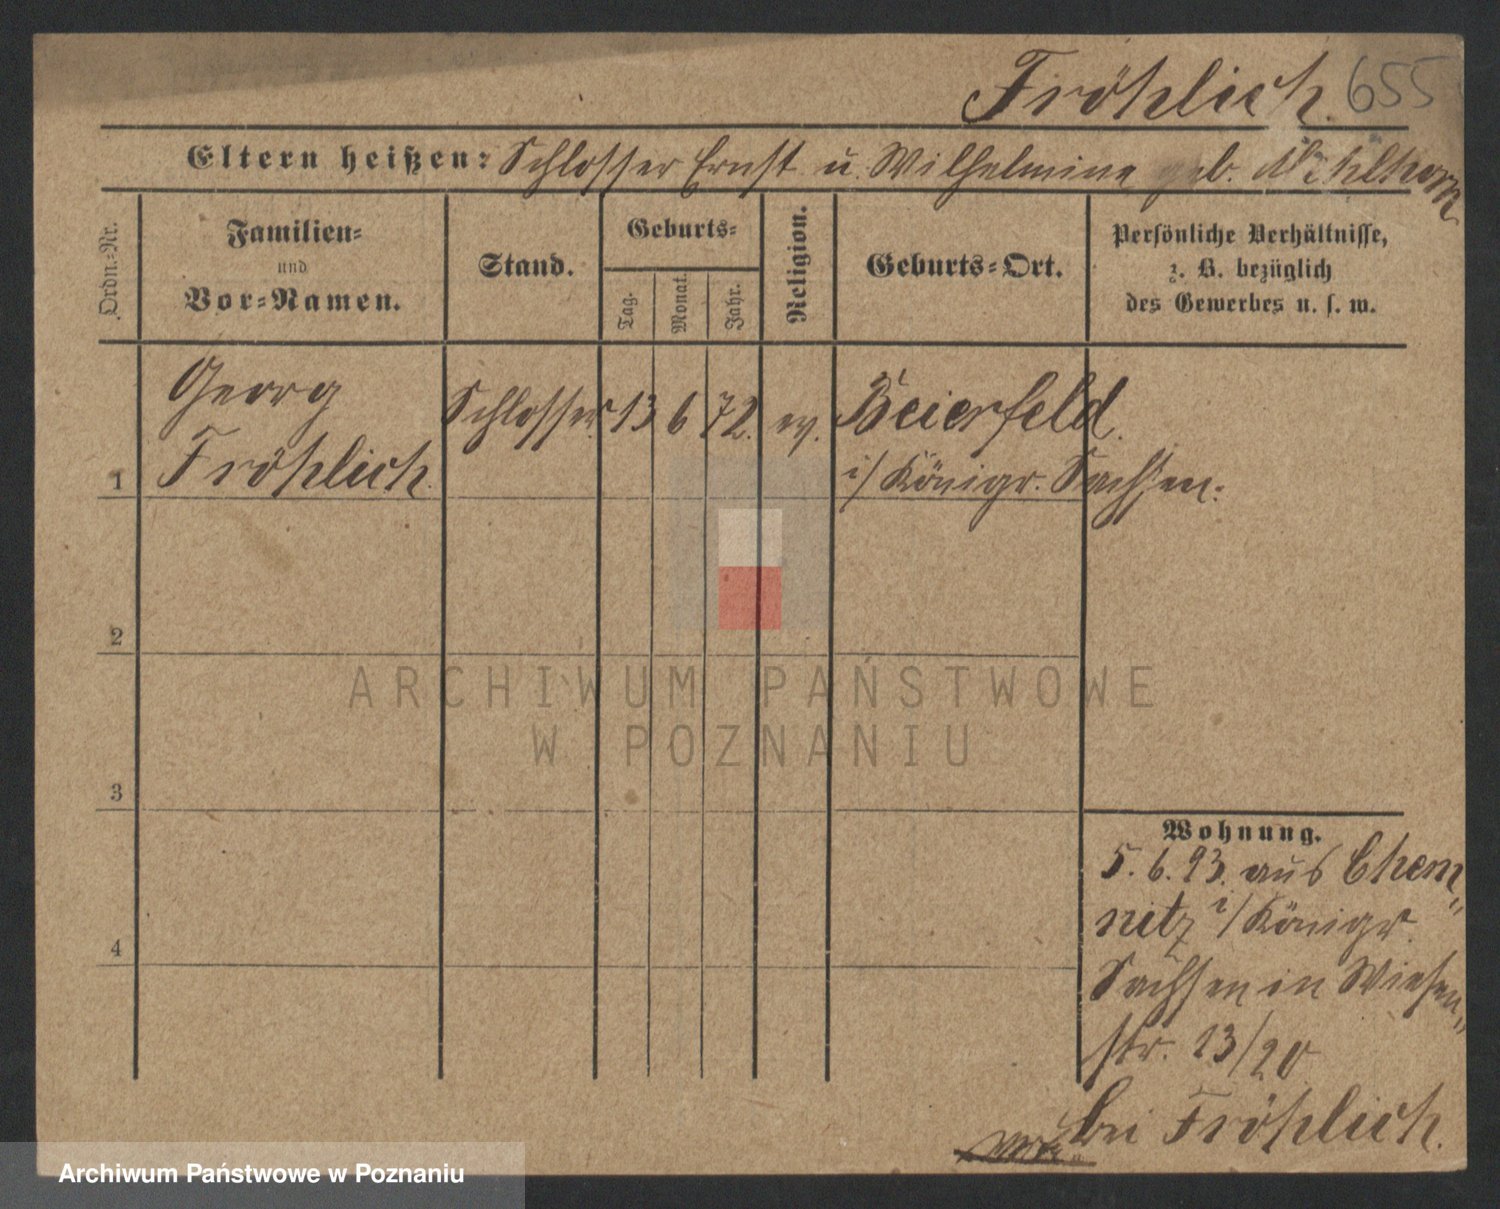 Fröhlich. 655
Eltern heißen: Schlosser Ernst u. Wilhelmine geb.
Ordn.-Nr.
Familien-
und
Vor-Namen.
Stand.
Geburts-
Tag.
Monat.
Jahr.
Religion.
Geburts-Ort.
Persönliche Verhältnisse,
z. B. bezüglich
des Gewerbes u. s. w.
1
Georg
Fröhlich.
Schlosser 13 6 72. ev. Beierfeld.
i/ Königr. Sachsen.
2
3
4
Wohnung.
5. 6. 93. aus Chem„
nitz i/ Königr.
Sachsen in Wiesen„
str. 13/20
bei Fröhlich.
ARCHIWUM PAŃSTWOWE
W POZNANIU
Archiwum Państwowe w Poznaniu